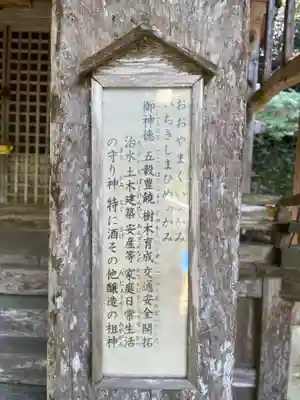 おおやまくいのかみ
いちきしまひめのかみ
御神徳 五穀豊饒 樹木育成 交通安全 開拓
治水 土木建築 安産等 家庭日常生活
の守り神 特に酒その他醸造の祖神